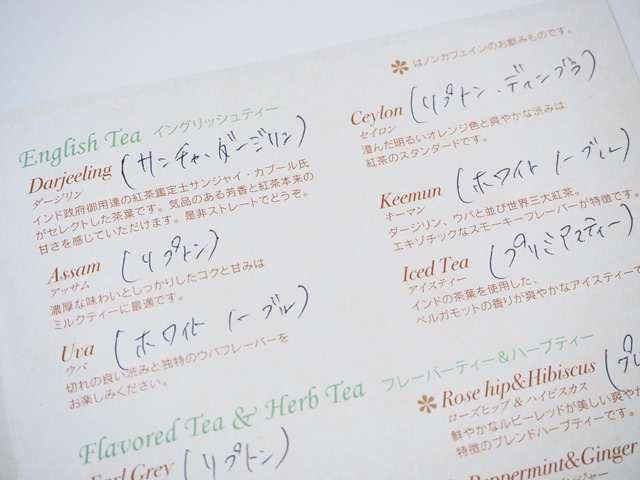 ✽はノンカフェインのお飲みものです。
English Tea イングリッシュティー
Darjeeling (サンチャ、ダージリン)
ダージリン
インド政府御用達の紅茶鑑定士サンジャイ・カプール氏
がセレクトした茶葉です。気品のある芳香と紅茶本来の
甘さを感じていただけます。是非ストレートでどうぞ。
Assam (リプトン)
アッサム
濃厚な味わいとしっかりしたコクと甘みは
ミルクティーに最適です。
Uva (ホワイト ノーブル)
ウバ
切れの良い渋みと独特のウバフレーバーを
お楽しみください。
Ceylon (リプトン、ディンブラ)
セイロン
澄んだ明るいオレンジ色と爽やかな渋みは
紅茶のスタンダードです。
Keemun (ホワイト ノーブル)
キーマン
ダージリン、ウバと並び世界三大紅茶。
エキゾチックなスモーキーフレーバーが特徴です。
Iced Tea (プリミアスティー)
アイスティー
インドの茶葉を使用した、
ベルガモットの香りが爽やかなアイスティーで
Flavored Tea & Herb Tea フレーバーティー&ハーブティー
Earl Grey (リプトン)
✽Rose hip&Hibiscus (プレ
ローズヒップ & ハイビスカス
鮮やかなルビーレッドが美しい爽や
特徴のブレンドハーブティーです。
Peppermint&Ginger